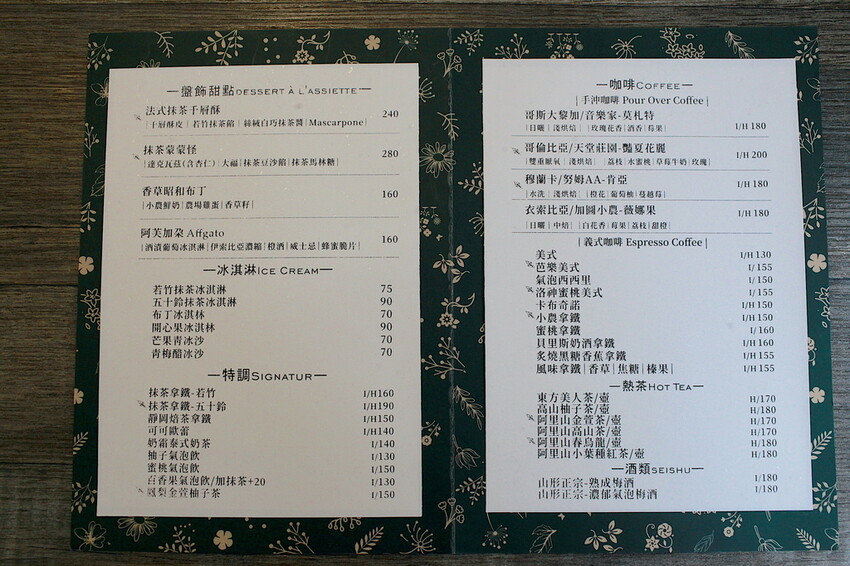 —盤飾甜點DESSERT À L'ASSIETTE—
法式抹茶千層酥 240
|千層酥皮|若竹抹茶餡|絲絨白巧抹茶醬|Mascarpone|
抹茶蒙蒙怪 280
|達克瓦茲(含杏仁)|大福|抹茶豆沙餡|抹茶馬林糖|
香草昭和布丁 160
|小農鮮奶|農場雞蛋|香草籽|
阿芙加朶 Affgato 160
|酒漬葡萄冰淇淋|伊索比亞濃縮|橙酒|威士忌|蜂蜜脆片|
—冰淇淋ICE CREAM—
若竹抹茶冰淇淋 75
五十鈴抹茶冰淇淋 90
布丁冰淇淋 70
開心果冰淇淋 90
芒果青冰沙 70
青梅醋冰沙 70
—特調SIGNATUR—
抹茶拿鐵-若竹 I/H160
抹茶拿鐵-五十鈴 I/H190
靜岡焙茶拿鐵 I/H150
可可歐蕾 I/H140
奶霜泰式奶茶 I/140
柚子氣泡飲 I/130
蜜桃氣泡飲 I/150
百香果氣泡飲/加抹茶+20 I/130
鳳梨金萱柚子茶 I/150
—咖啡COFFEE—
|手沖咖啡 Pour Over Coffee|
哥斯大黎加/音樂家-莫札特 I/H 180
|日曬|淺烘焙| |玫瑰花香|酒香|莓果|
哥倫比亞/天堂莊園-豔夏花麗 I/H 200
|雙重厭氧|淺烘焙| |荔枝|水蜜桃|草莓牛奶|玫瑰|
穆蘭卡/努姆AA-肯亞 I/H 180
|水洗|淺烘焙| |橙花|葡萄柚|蔓越莓|
衣索比亞/加圖小農-薇娜果 I/H 180
|日曬|中焙| |白花香|莓果|荔枝|甜橙|
|義式咖啡 Espresso Coffee|
美式 I/H 130
芭樂美式 I/ 155
氣泡西西里 I/ 150
洛神蜜桃美式 I/ 155
卡布奇諾 I/H 150
小農拿鐵 I/H 150
蜜桃拿鐵 I/ 160
貝里斯奶酒拿鐵 I/H 160
炙燒黑糖香蕉拿鐵 I/H 155
風味拿鐵|香草|焦糖|榛果| I/H 155
—熱茶HOT TEA—
東方美人茶/壺 H/170
高山柚子茶/壺 H/180
阿里山金萱茶/壺 H/170
阿里山高山茶/壺 H/170
阿里山春烏龍/壺 H/180
阿里山小葉種紅茶/壺 H/180
—酒類SEISHU—
山形正宗-熟成梅酒 I/180
山形正宗-濃郁氣泡梅酒 I/180